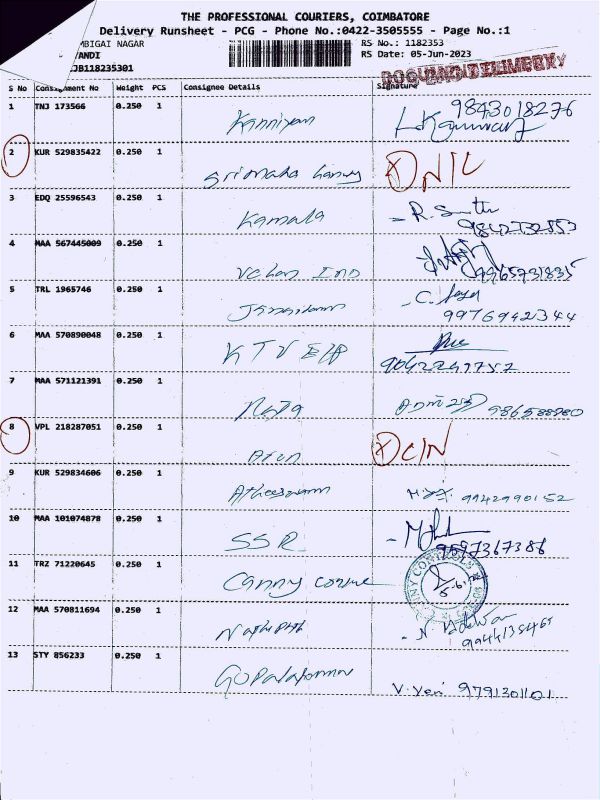 THE PROFESSIONAL COURIERS, COIMBATORE
Delivery Runsheet - PCG - Phone No.:0422-3505555 - Page No.:1
MBIGAI NAGAR
RS No.: 1182353
ANDI
RS Date: 05-Jun-2023
JB118235301
S No Consignment No Weight PCS Consignee Details Signature
1 TNJ 173566 0.250 1 Kanniyam 9843018276
2 KUR 529835422 0.250 1 NIL
3 EDQ 25596543 0.250 1 Kamala - R. 9842732853
4 MAA 567445009 0.250 1 9965731835
5 TRL 1965746 0.250 1 - C. Jaya
9976942344
6 MAA 570890048 0.250 1 KTV
9042241752
7 MAA 571121391 0.250 1 Raja
8 VPL 218287051 0.250 1 Arun CIN
9 KUR 529834606 0.250 1 Atheeswaran 9942990152
10 MAA 101074878 0.250 1 SSR 9597367386
11 TRZ 71220645 0.250 1 Canny
12 MAA 570811694 0.250 1 - N.
13 STY 856233 0.250 1 V. 9791301101